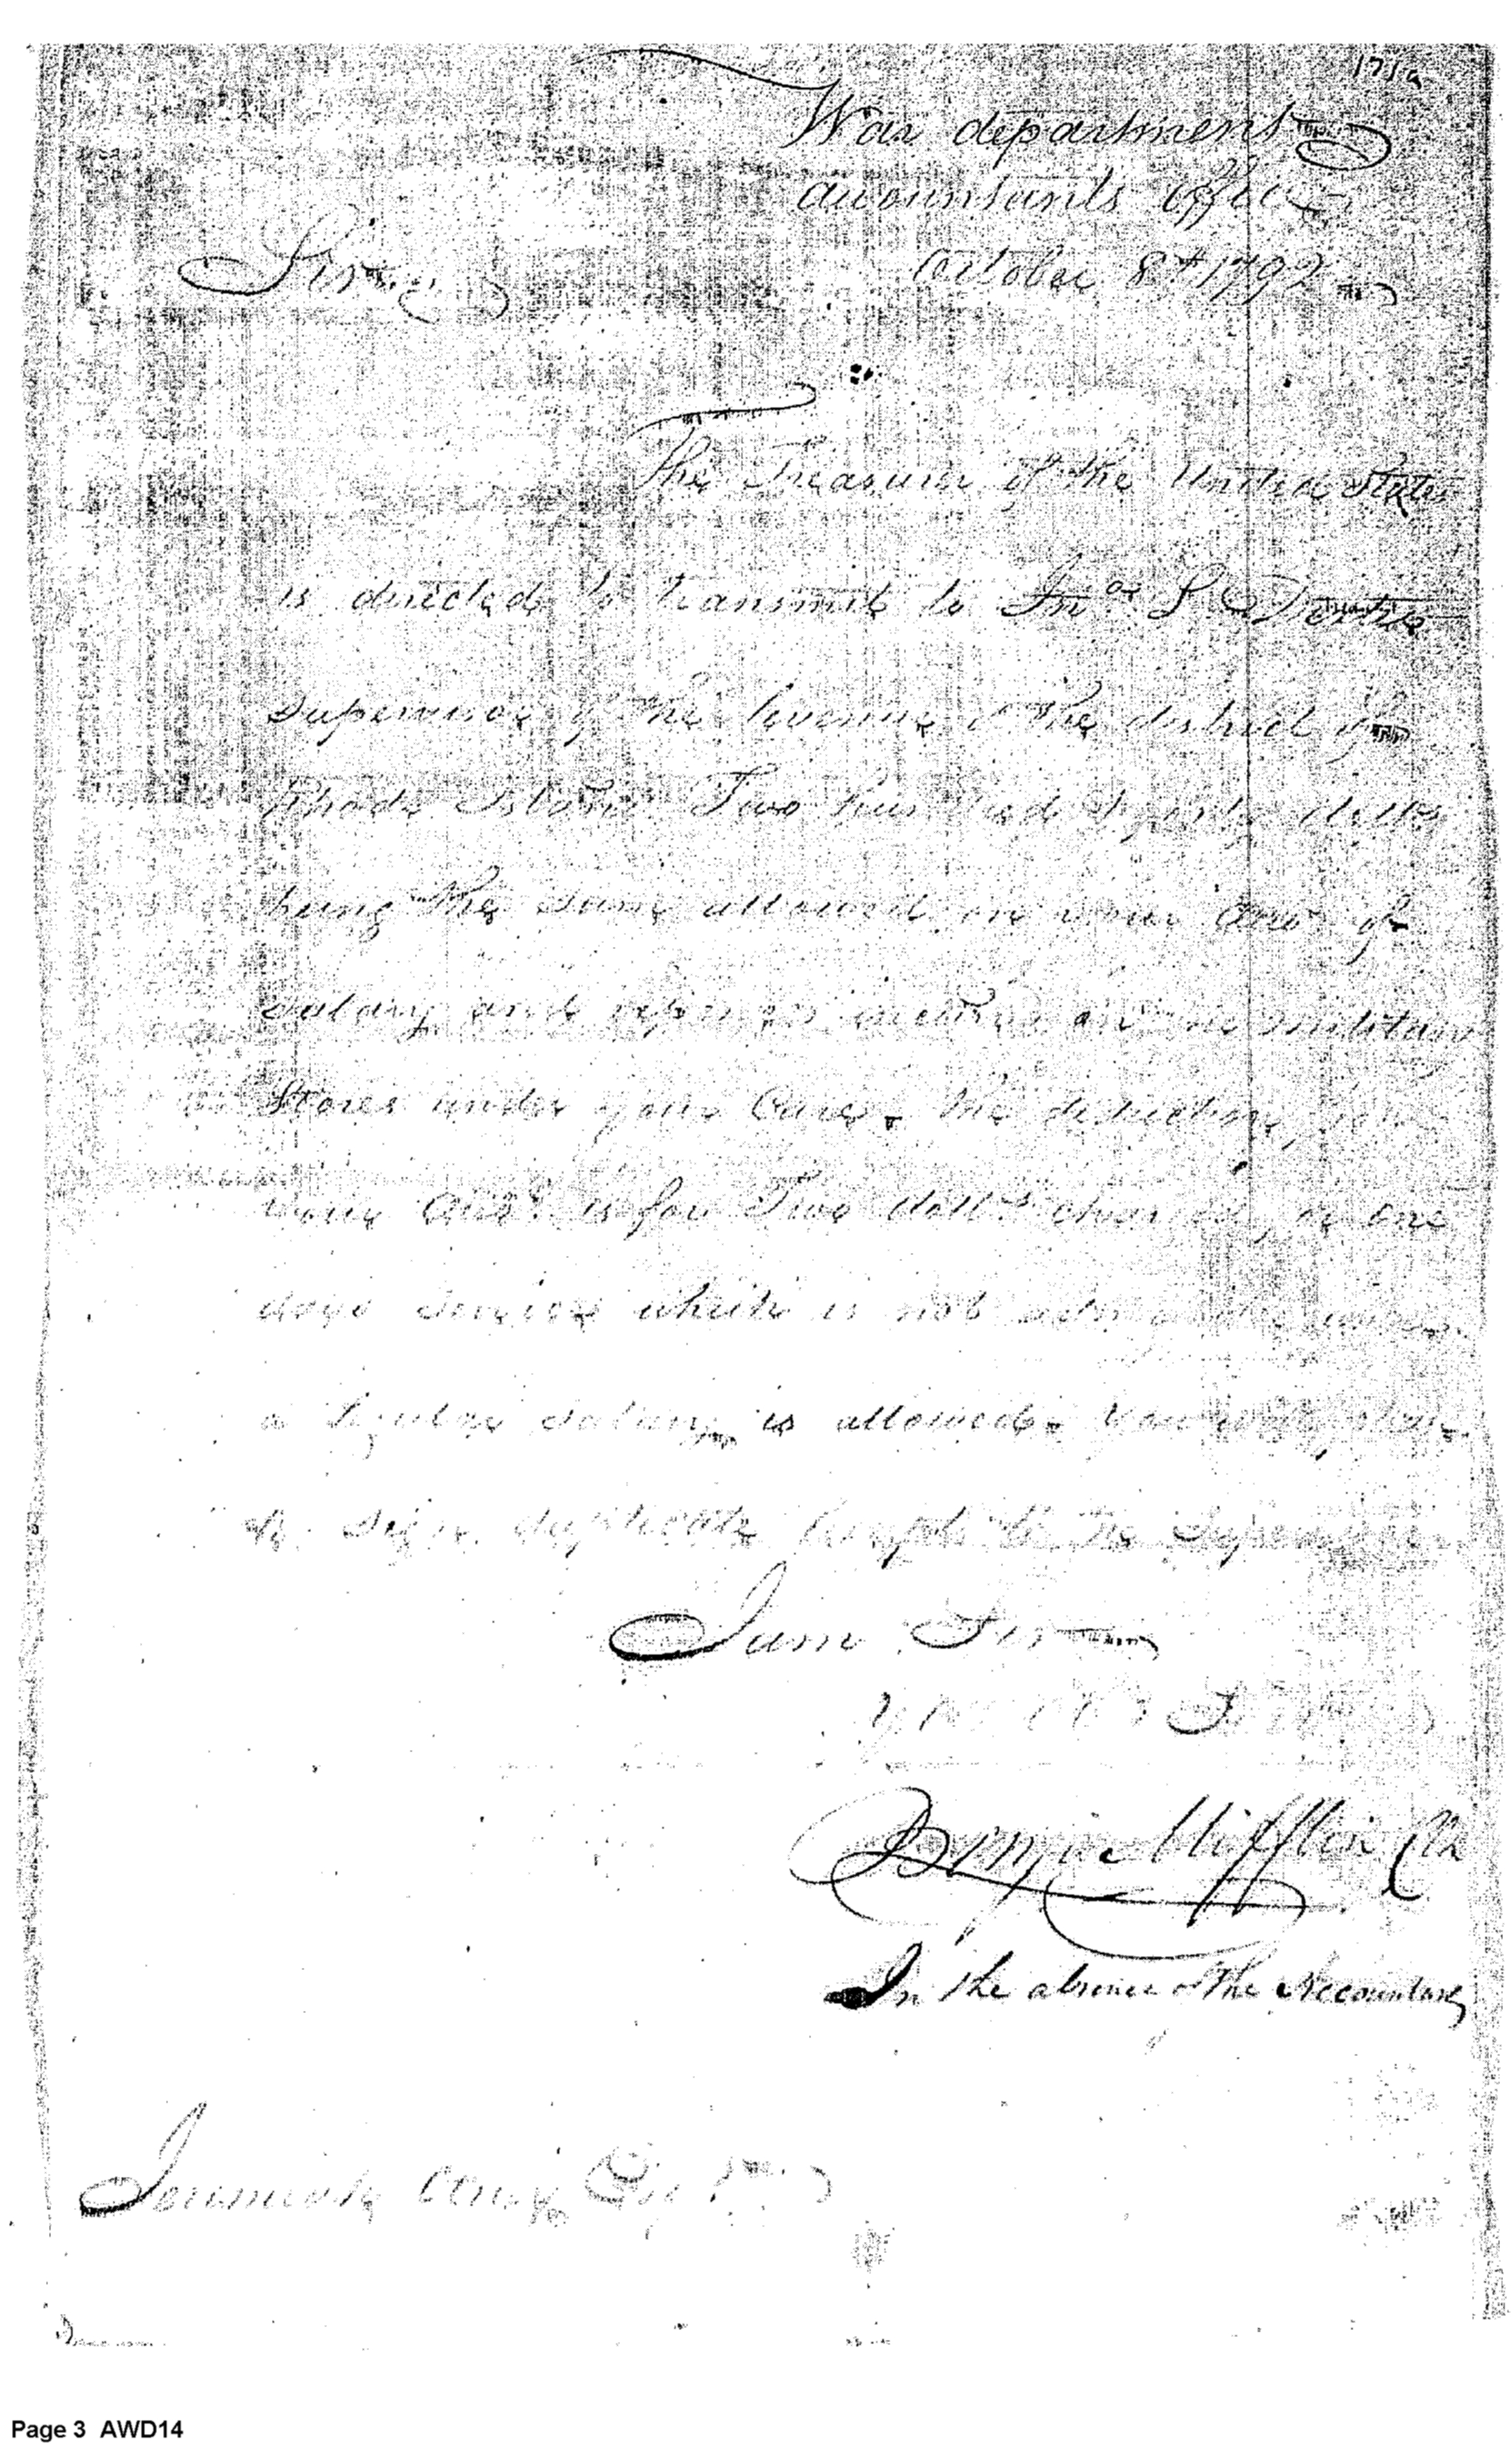 171a
War department
accountants office
October 8th 1792
Sir
The Treasurer of the United States
is directed to transmit to Jno S Dexter
supervisor of the revenue of the district of
Rhode Island Two hundred & forty dollrs
being the sum allowed on your Acco of
salary and expenses incurred on the military
Stores under your Care. The deduction from
your Acco is for Two dollrs charged for one
days service which is not admissible where
a regular salary is allowed. You will please
to sign duplicate receipts to the Supervisor
I am Sir
Benjn Mifflin Clk
In the absence of the Accountant
Jeremiah Olney Esqr
Page 3 AWD14